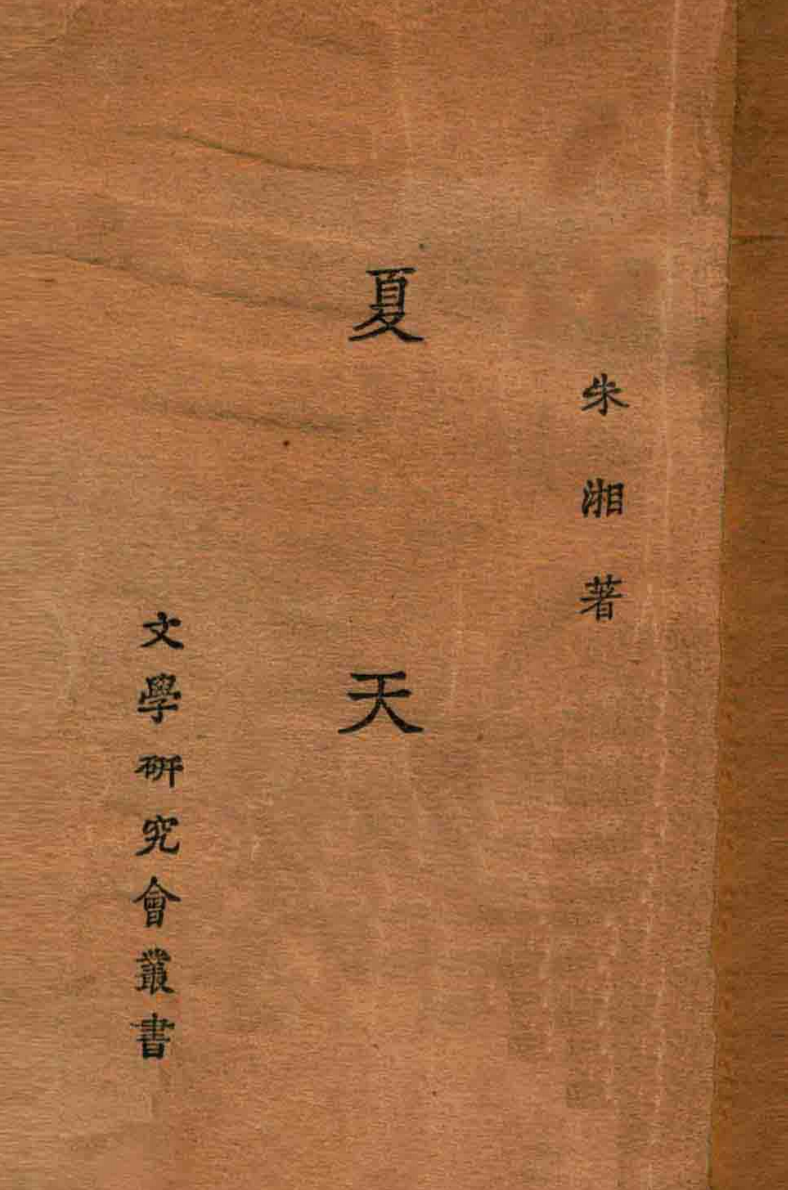 朱湘著
夏天
文學研究會叢書